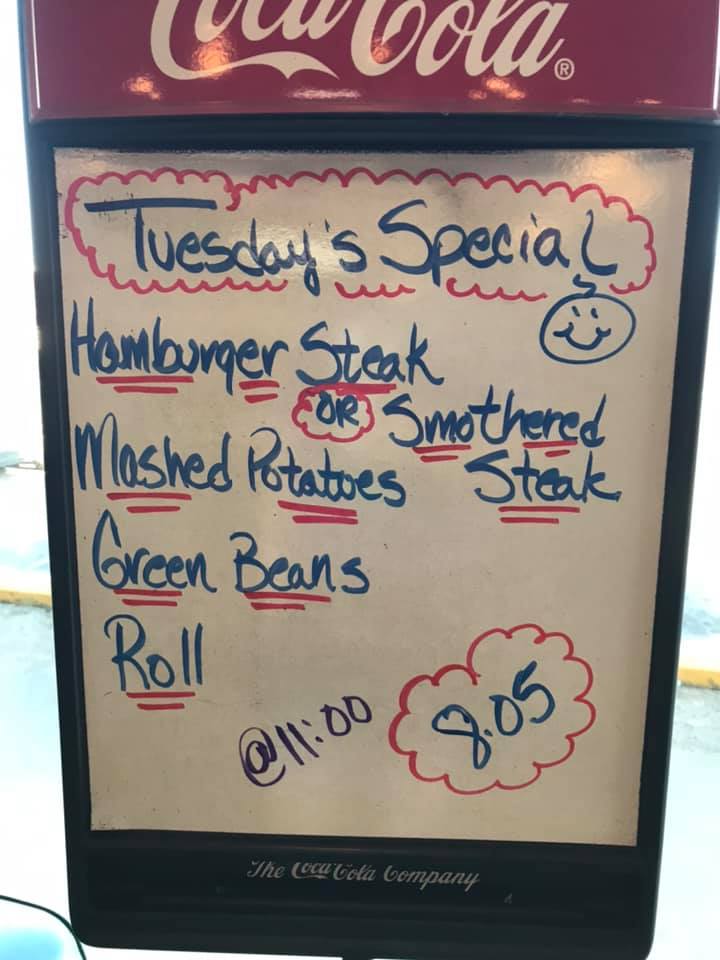 Coca-Cola®
Tuesday's Special
Hamburger Steak
OR Smothered
Mashed Potatoes Steak
Green Beans
Roll
@11:00
8.05
The Coca-Cola Company